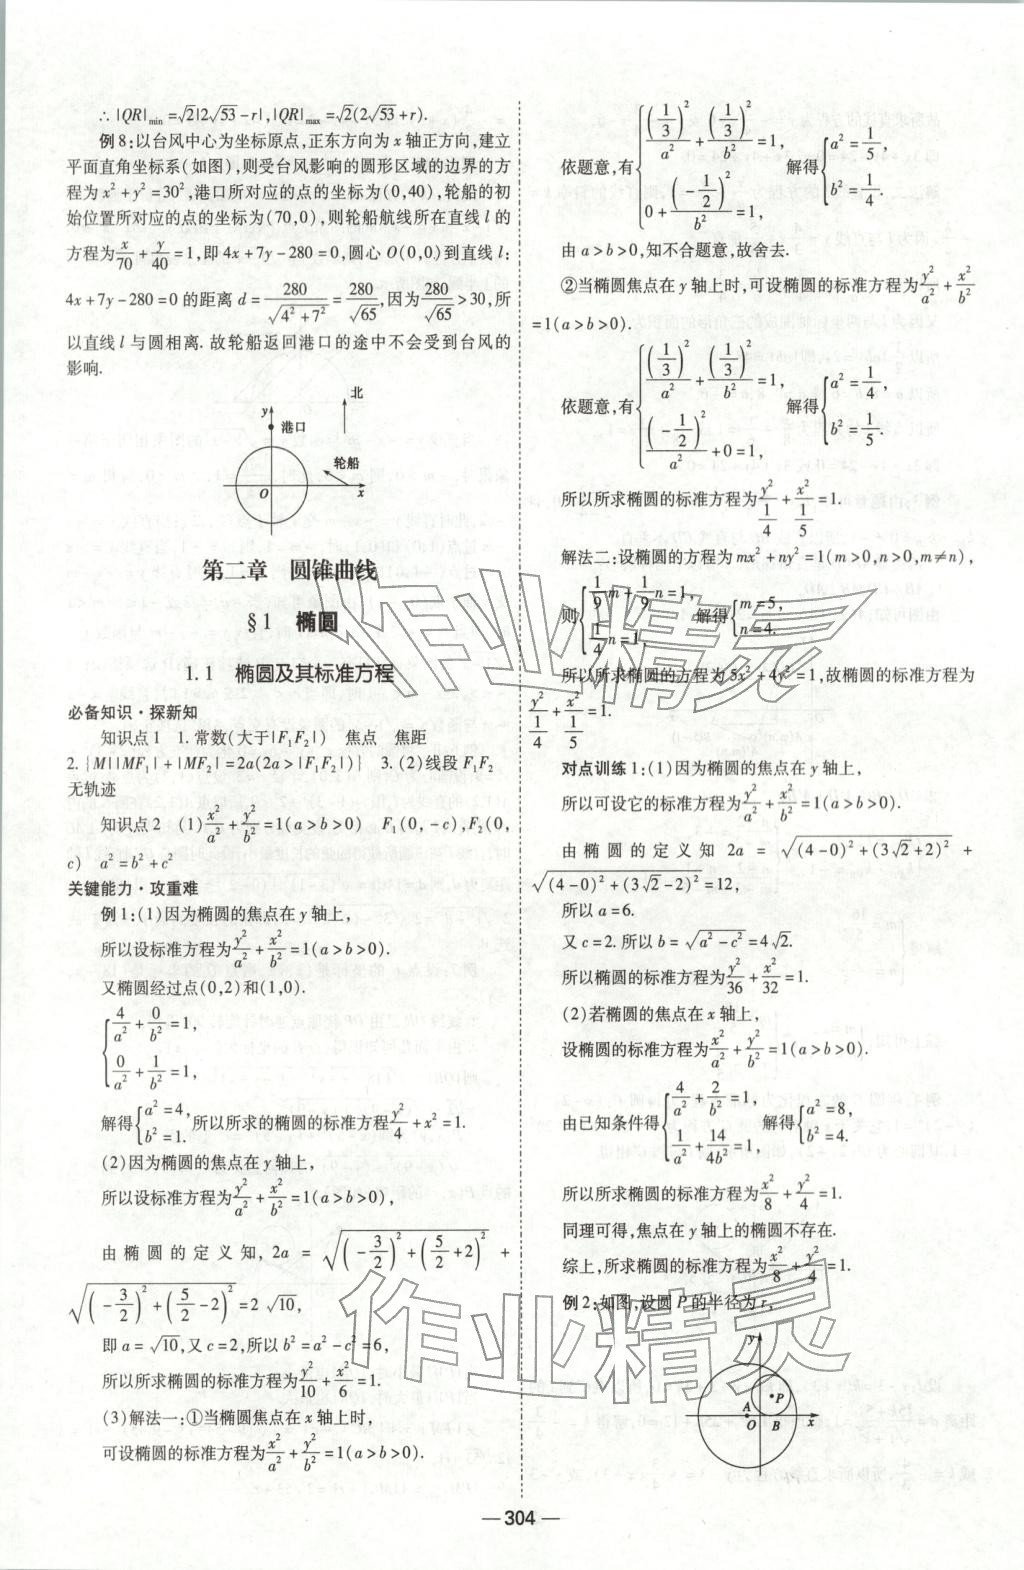 ∴ |QR|min=√2|2√53-r|,|QR|max=√2(2√53+r).
例8:以台风中心为坐标原点,正东方向为x轴正方向,建立
平面直角坐标系(如图),则受台风影响的圆形区域的边界的方
程为x²+y²=30²,港口所对应的点的坐标为(0,40),轮船的初
始位置所对应的点的坐标为(70,0),则轮船航线所在直线l的
方程为x/70+y/40=1,即4x+7y-280=0,圆心O(0,0)到直线l:
4x+7y-280=0的距离d=280/√(4²+7²)=280/√65,因为280/√65>30,所
以直线l与圆相离.故轮船返回港口的途中不会受到台风的
影响.
北
y
港口
轮船
O x
第二章 圆锥曲线
§1 椭圆
1.1 椭圆及其标准方程
必备知识·探新知
知识点1 1.常数(大于|F₁F₂|) 焦点 焦距
2.{M||MF₁|+|MF₂|=2a(2a>|F₁F₂|)} 3.(2)线段F₁F₂
无轨迹
知识点2 (1)x²/a²+y²/b²=1(a>b>0) F₁(0,-c),F₂(0,
c) a²=b²+c²
关键能力·攻重难
例1:(1)因为椭圆的焦点在y轴上,
所以设标准方程为y²/a²+x²/b²=1(a>b>0).
又椭圆经过点(0,2)和(1,0).
{4/a²+0/b²=1,
0/a²+1/b²=1,
解得{a²=4, b²=1.所以所求的椭圆的标准方程y²/4+x²=1.
(2)因为椭圆的焦点在y轴上,
所以设标准方程为y²/a²+x²/b²=1(a>b>0),
由椭圆的定义知,2a=√((-3/2)²+(5/2+2)²)+
√((-3/2)²+(5/2-2)²)=2√10,
即a=√10,又c=2,所以b²=a²-c²=6,
所以所求椭圆的标准方程为y²/10+x²/6=1.
(3)解法一:①当椭圆焦点在x轴上时,
可设椭圆的标准方程为x²/a²+y²/b²=1(a>b>0).
依题意,有{(1/3)²/a²+(1/3)²/b²=1, 0+(-1/2)²/b²=1, 解得{a²=1/5, b²=1/4.
由a>b>0,知不合题意,故舍去.
②当椭圆焦点在y轴上时,可设椭圆的标准方程为y²/a²+x²/b²
=1(a>b>0).
依题意,有{(1/3)²/a²+(1/3)²/b²=1, (-1/2)²/a²+0=1, 解得{a²=1/4, b²=1/5.
所以所求椭圆的标准方程为y²/(1/4)+x²/(1/5)=1.
解法二:设椭圆的方程为mx²+ny²=1(m>0,n>0,m≠n),
则{1/9m+1/9n=1, 1/4n=1, 解得{m=5, n=4.
所以所求椭圆的方程为5x²+4y²=1,故椭圆的标准方程为
y²/(1/4)+x²/(1/5)=1.
对点训练1:(1)因为椭圆的焦点在y轴上,
所以可设它的标准方程为y²/a²+x²/b²=1(a>b>0).
由椭圆的定义知2a=√((4-0)²+(3√2+2)²)+
√((4-0)²+(3√2-2)²)=12,
所以a=6.
又c=2.所以b=√(a²-c²)=4√2.
所以椭圆的标准方程为y²/36+x²/32=1.
(2)若椭圆的焦点在x轴上,
设椭圆的标准方程为x²/a²+y²/b²=1(a>b>0).
由已知条件得{4/a²+2/b²=1, 1/a²+14/4b²=1, 解得{a²=8, b²=4.
所以所求椭圆的标准方程为x²/8+y²/4=1.
同理可得,焦点在y轴上的椭圆不存在.
综上,所求椭圆的标准方程为x²/8+y²/4=1.
例2:如图,设圆P的半径为r,
y
P
A
O B x
304
作业精灵
作业精灵